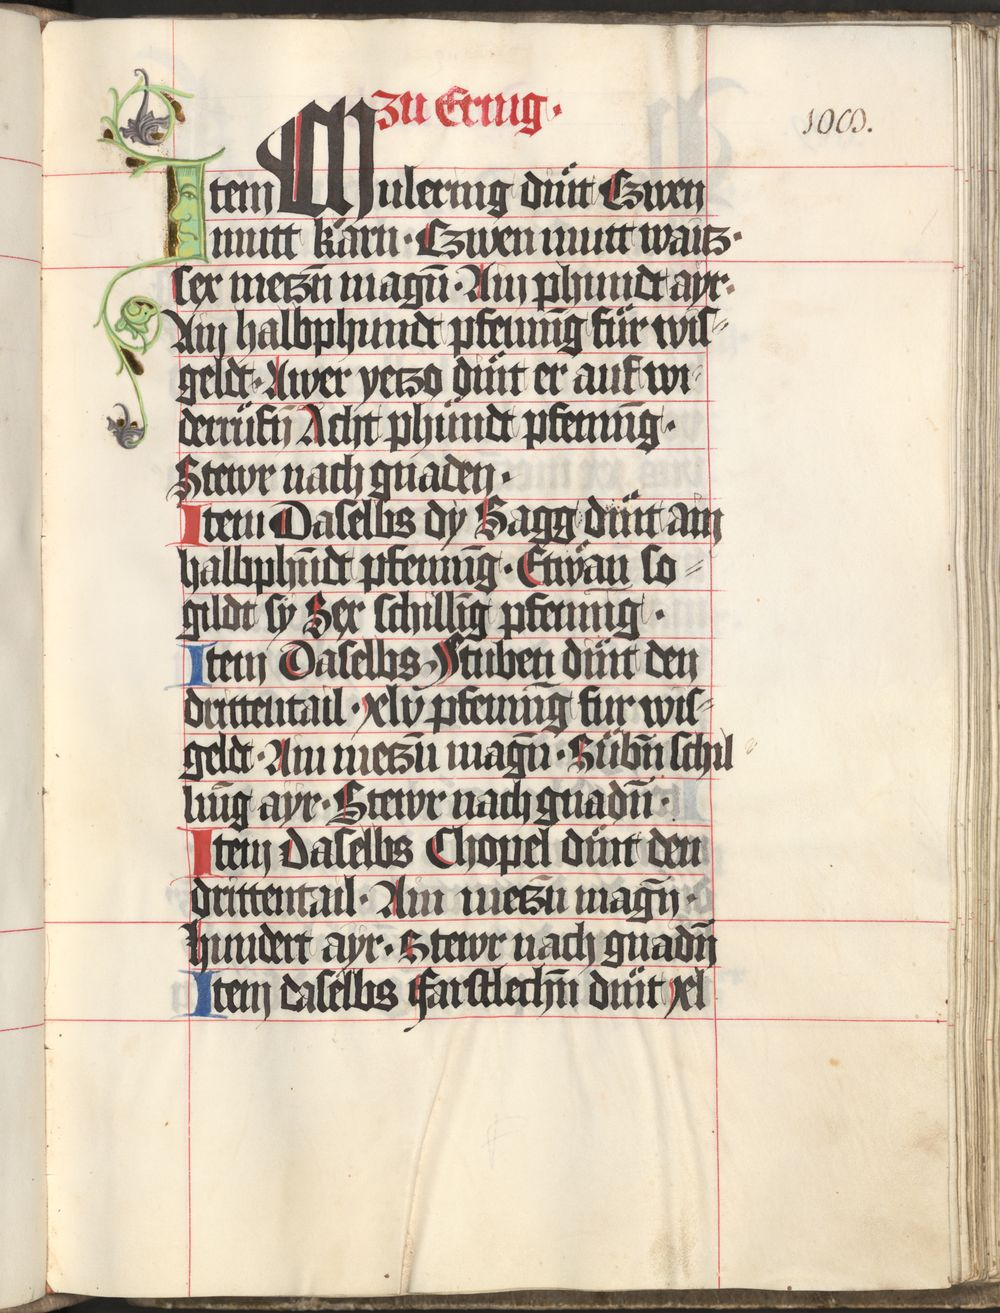 zu Ering·
100.
Item Mulernig dint Czwen
mutt karn· Czwen mutt waitz·
sex meczn̄ magn̄· Ain phundt ayr·
Ain halbphundt pfennīg für wis=
geldt· Awer yetzo dint er auf wi=
derrüfn̄ Acht phundt pfennīg·
Stewr nach gnaden·
Item Daselbs dy Sagg dint ain
halbphūdt pfennīg· Etwan so=
gildt sy Sex schillīg pfennīg·
Item Daselbs Stuben dint den
drittentail· xlv pfennīg fur wis=
geldt· Ain meczn̄ magn̄· Sübn̄ schil
līng ayr· Stewr nach gnadn̄·
Item Daselbs Chopel dint den
drittentail· Ain meczn̄ magn̄·
hundert ayr· Stewr nach gnadn̄
Item daselbs Farstlechn̄ dint xl